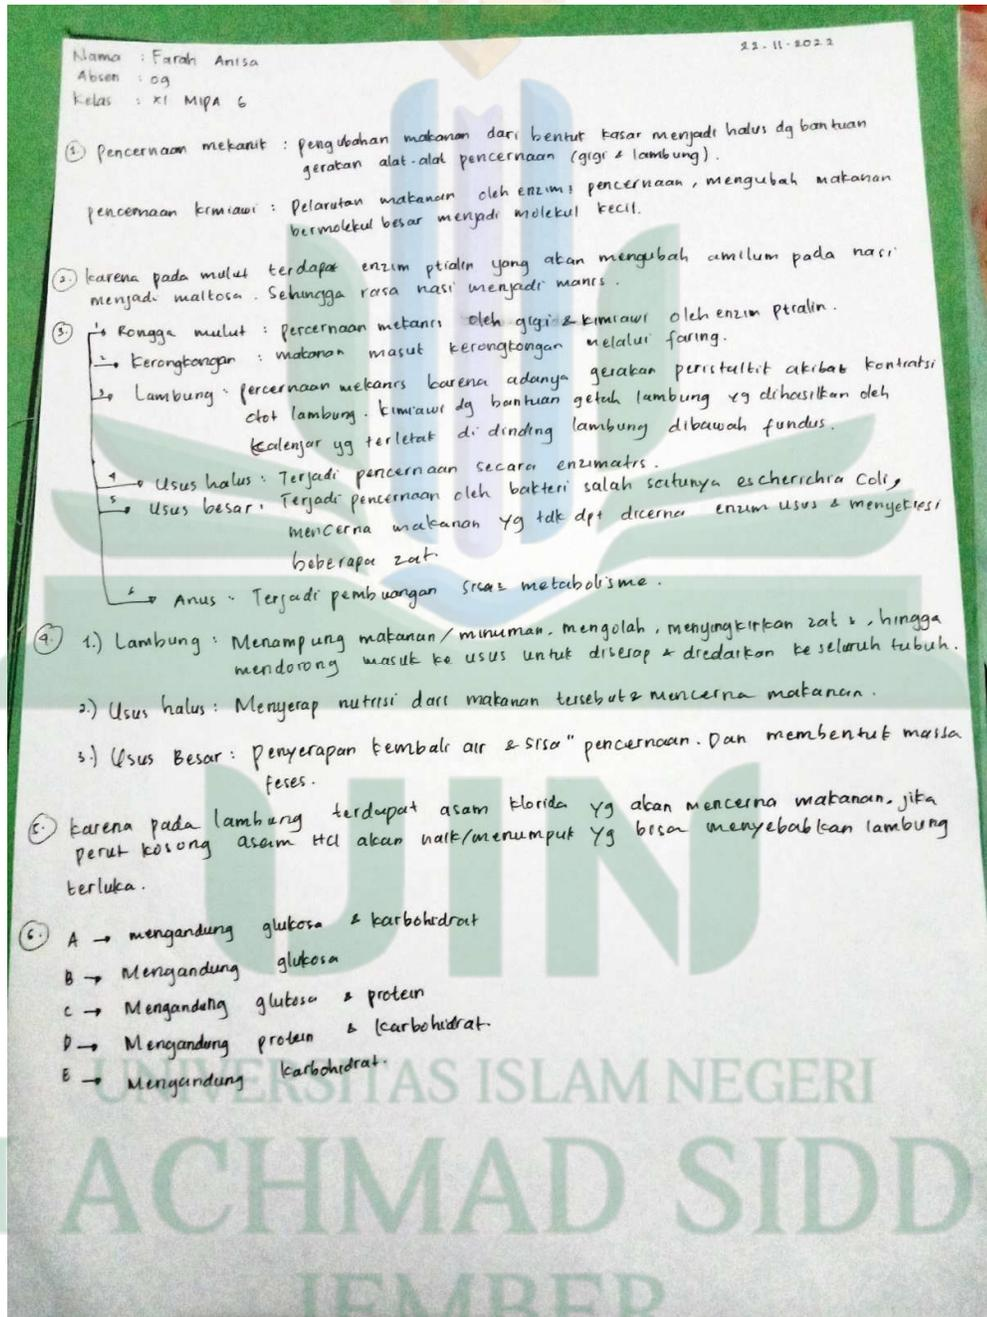 22-11-2022
Nama : Farah Anisa
Absen : 09
Kelas : XI MIPA 6
1. Pencernaan mekanik : pengubahan makanan dari bentuk kasar menjadi halus dg bantuan
gerakan alat-alat pencernaan (gigi & lambung).
pencernaan kimiawi : Pelarutan makanan oleh enzim² pencernaan, mengubah makanan
bermolekul besar menjadi molekul kecil.
2. karena pada mulut terdapat enzim ptialin yang akan mengubah amilum pada nasi
menjadi maltosa. Sehingga rasa nasi menjadi manis.
3. 1 → Rongga mulut : percernaan mekanis oleh gigi & kimiawi oleh enzim ptialin.
2 → Kerongkongan : makanan masuk kerongkongan melalui faring.
3 → Lambung : percernaan mekanis karena adanya gerakan peristaltik akibat kontraksi
otot lambung. kimiawi dg bantuan getah lambung yg dihasilkan oleh
kalenjar yg terletak di dinding lambung dibawah fundus.
4 → Usus halus : Terjadi pencernaan secara enzimatis.
5 → Usus besar : Terjadi pencernaan oleh bakteri salah satunya escherichia Coli,
mencerna makanan yg tdk dpt dicerna enzim usus & menyekresi
beberapa zat.
6 → Anus : Terjadi pembuangan sisa² metabolisme.
4. 1.) Lambung : Menampung makanan/minuman, mengolah, menyingkirkan zat², hingga
mendorong masuk ke usus untuk diserap & diedarkan ke seluruh tubuh.
2.) Usus halus : Menyerap nutrisi dari makanan tersebut & mencerna makanan.
3.) Usus Besar : Penyerapan kembali air & sisa" pencernaan. Dan membentuk massa
feses.
5. karena pada lambung terdapat asam klorida yg akan mencerna makanan. jika
perut kosong asam HCl akan naik/menumpuk yg bisa menyebabkan lambung
terluka.
6. A → mengandung glukosa & karbohidrat
B → Mengandung glukosa
C → Mengandung glukosa & protein
D → Mengandung protein & karbohidrat.
E → Mengandung karbohidrat.
UIN
UNIVERSITAS ISLAM NEGERI
ACHMAD SIDD
JEMBER